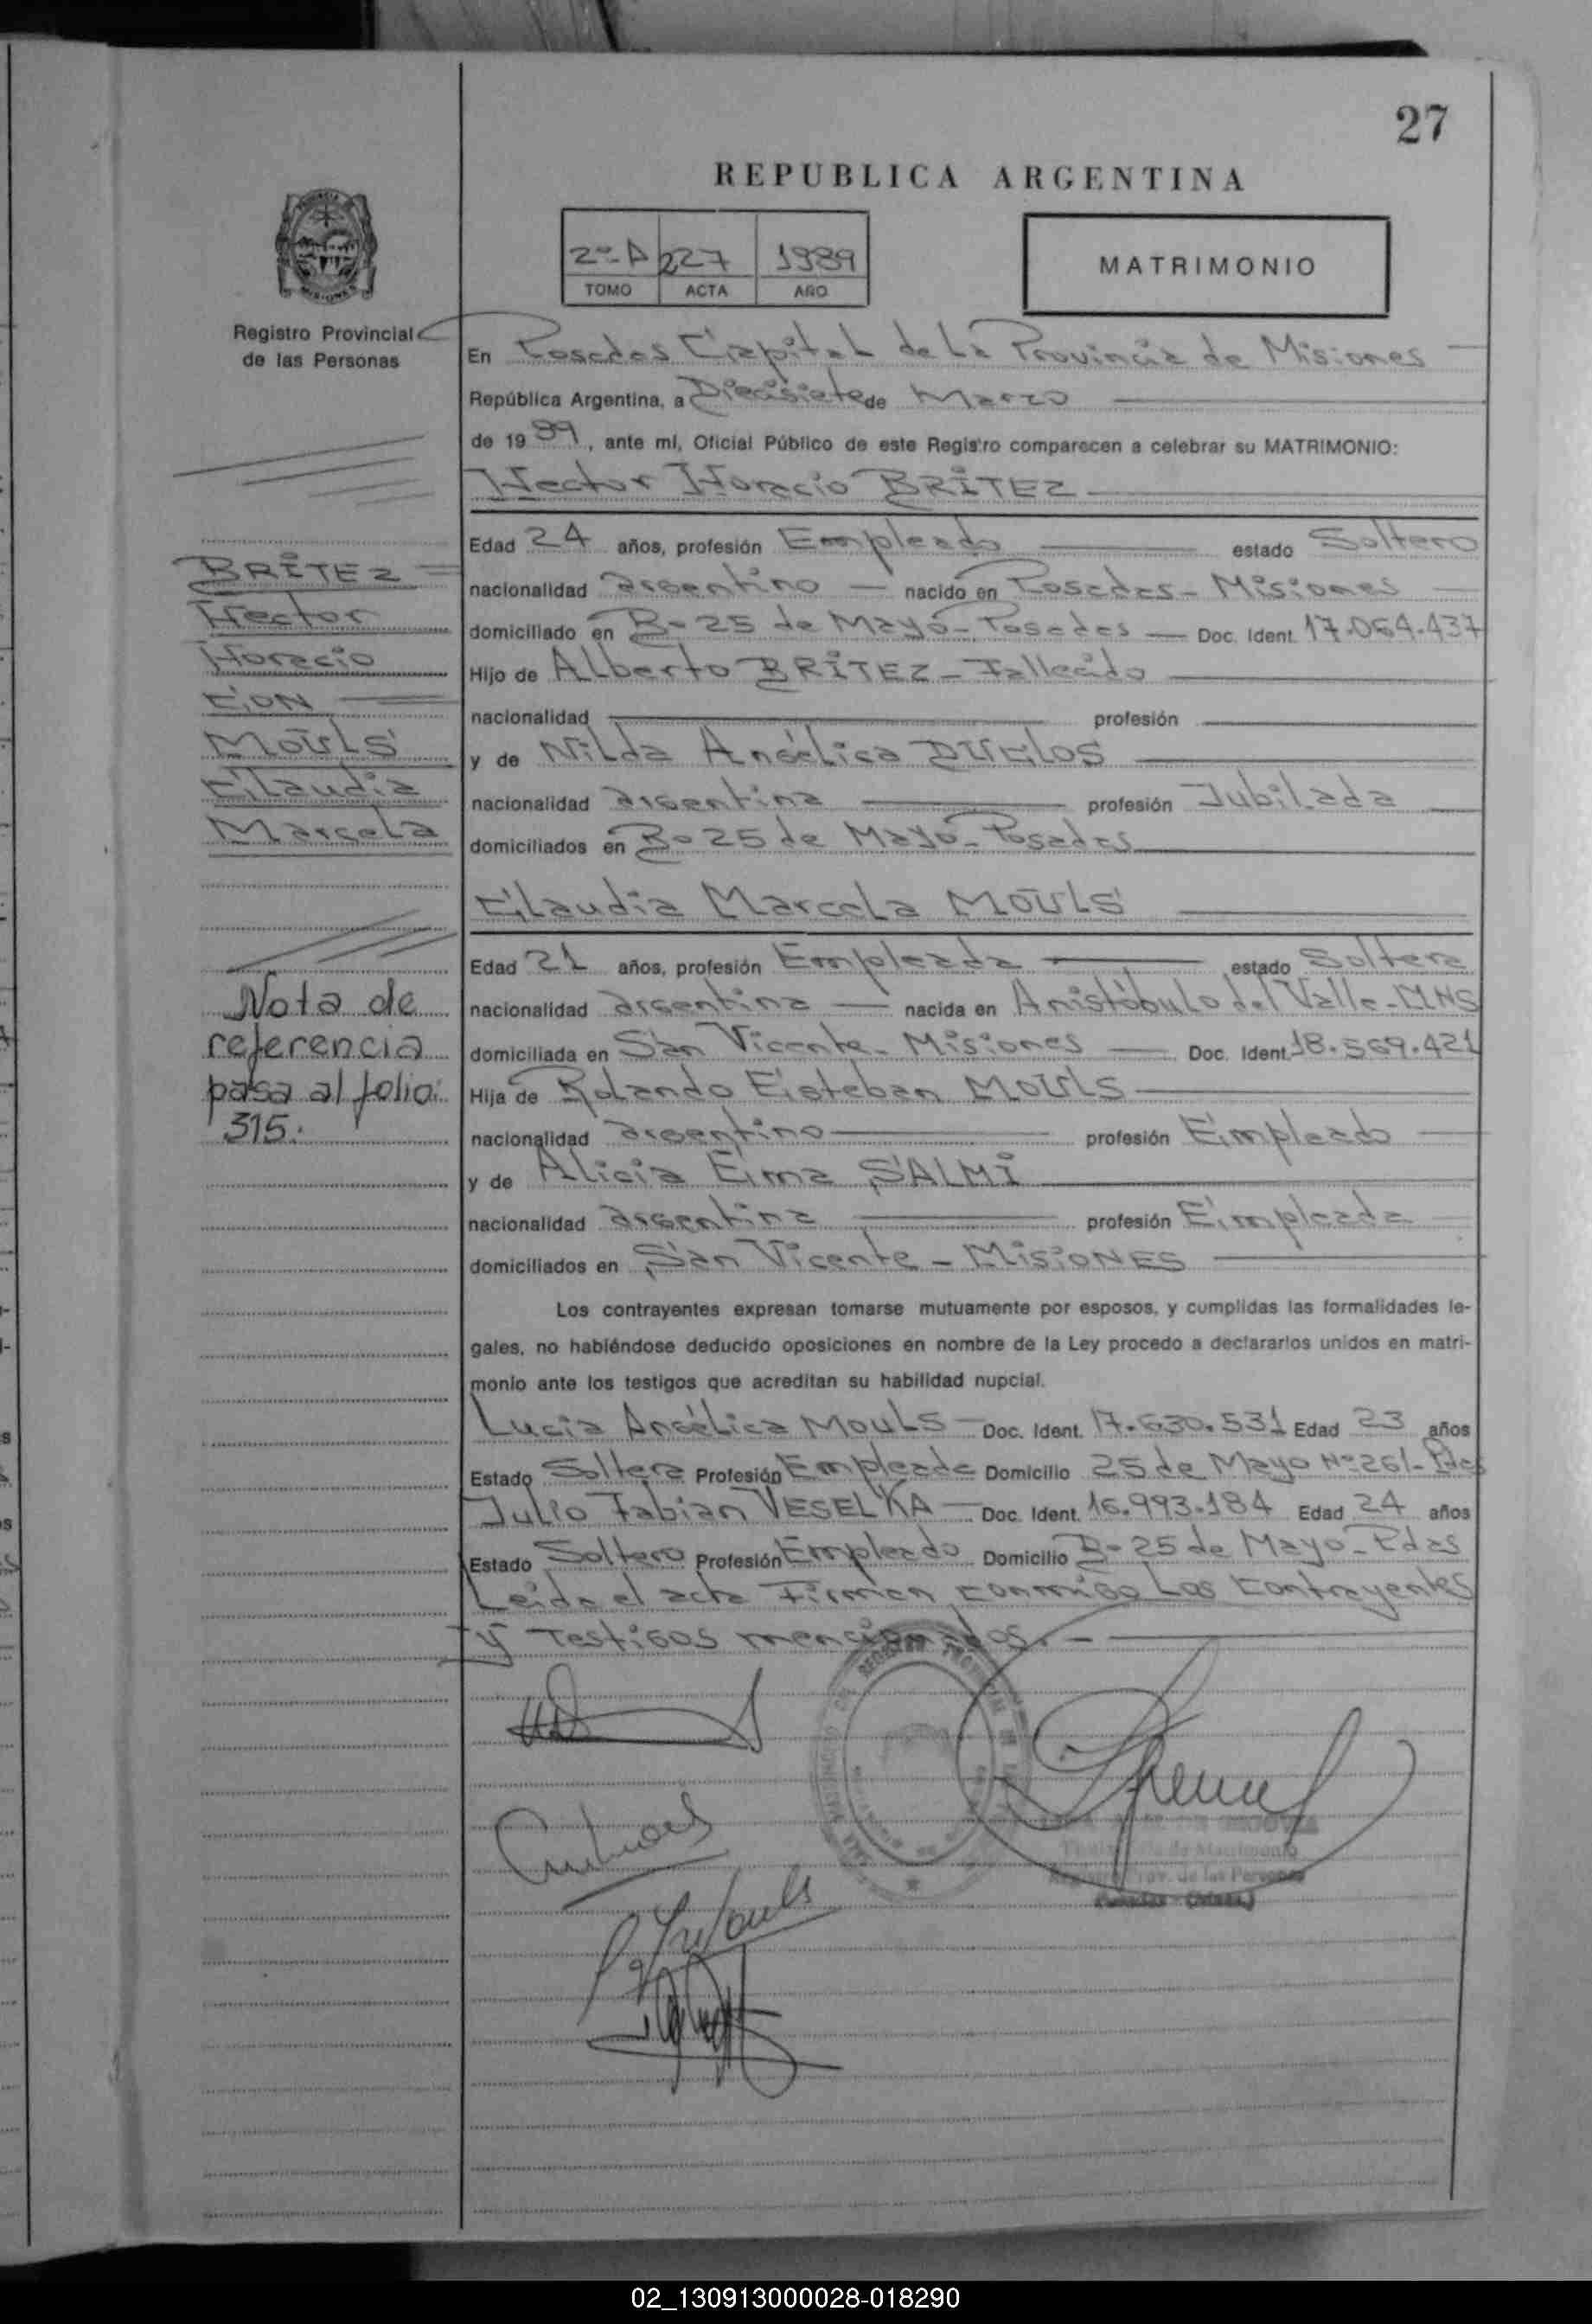 27
REPUBLICA ARGENTINA
2º-A 227 1989
TOMO ACTA AÑO
MATRIMONIO
Registro Provincial
de las Personas
En Posadas Capital de La Provincia de Misiones
República Argentina, a Diecisiete de Marzo
de 1989, ante mí, Oficial Público de este Registro comparecen a celebrar su MATRIMONIO:
Hector Horacio BRITEZ
Edad 24 años, profesión Empleado estado Soltero
nacionalidad argentino nacido en Posadas - Misiones
domiciliado en Bº 25 de Mayo - Posadas Doc. Ident. 17.064.437
Hijo de Alberto BRITEZ - Fallecido
nacionalidad profesión
y de Nilda Angélica DUCLOS
nacionalidad argentina profesión Jubilada
domiciliados en Bº 25 de Mayo - Posadas
BRITEZ
Hector
Horacio
CON
MOULS
Claudia
Marcela
Claudia Marcela MOULS
Edad 21 años, profesión Empleada estado Soltera
nacionalidad argentina nacida en Aristóbulo del Valle - MNS
domiciliada en San Vicente - Misiones Doc. Ident. 18.569.421
Hija de Rolando Esteban MOULS
nacionalidad argentino profesión Empleado
y de Alicia Ema SALMI
nacionalidad argentina profesión Empleada
domiciliados en San Vicente - MISIONES
Nota de
referencia
pasa al folio:
315.
Los contrayentes expresan tomarse mutuamente por esposos, y cumplidas las formalidades le-
gales, no habiéndose deducido oposiciones en nombre de la Ley procedo a declararlos unidos en matri-
monio ante los testigos que acreditan su habilidad nupcial.
Lucia Angélica MOULS Doc. Ident. 17.630.531 Edad 23 años
Estado Soltera Profesión Empleada Domicilio 25 de Mayo Nº 261 - Pdas
Julio Fabian VESELKA Doc. Ident. 16.993.184 Edad 24 años
Estado Soltero Profesión Empleado Domicilio Bº 25 de Mayo - Pdas
Leida el acta Firman conmigo Los Contrayentes
y Testigos mencionados. -
de Matrimonio
Prov. de las Personas
Posadas (Mnes.)
02_130913000028-018290